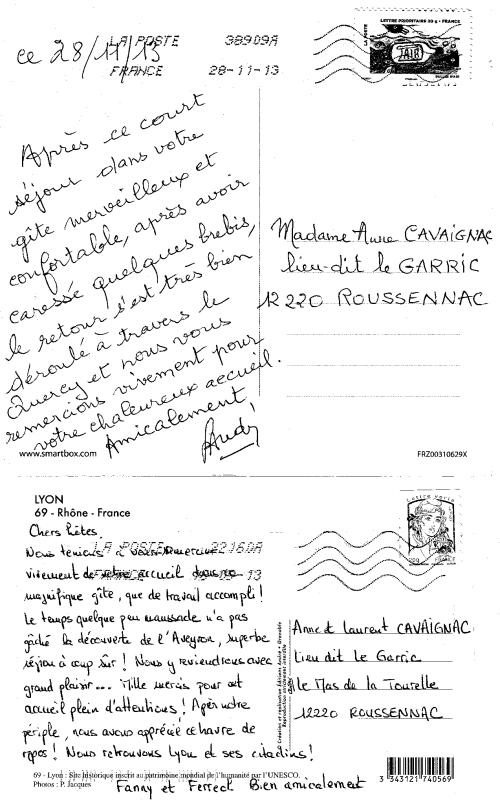 ce 28/11/13
LA POSTE 38909A
FRANCE 28-11-13
LETTRE PRIORITAIRE 20 g - FRANCE
LA POSTE
L'AIR
Après ce court
séjour dans votre
gîte merveilleux et
confortable, après avoir
caressé quelques brebis,
le retour s'est très bien
déroulé à travers le
Quercy et nous vous
remercions vivement pour
votre chaleureux accueil.
Amicalement,
Madame Anne CAVAIGNAC
lieu-dit le GARRIC
12220 ROUSSENNAC
www.smartbox.com
FRZ00310629X
LYON
69 - Rhône - France
Chers hôtes,
LA POSTE 22160A
Nous tenions à vous remercier
vivement de votre accueil dans ce
13
magnifique gîte, que de travail accompli !
Le temps quelque peu maussade n'a pas
gâché la découverte de l'Aveyron, superbe
séjour à coup sûr ! Nous y reviendrons avec
grand plaisir... Mille mercis pour cet
accueil plein d'attentions ! Après notre
périple, nous avons apprécié ce havre de
repos ! Nous retrouvons Lyon et ses citadins !
Fanny et Ferreol Bien amicalement
69 - Lyon : Site historique inscrit au patrimoine mondial de l'humanité par l'UNESCO.
Photos : P. Jacques
Reproduction interdite
Anne et Laurent CAVAIGNAC
Lieu dit Le Garric
Le Mas de la Tourelle
12220 ROUSSENNAC
3 343121 740569